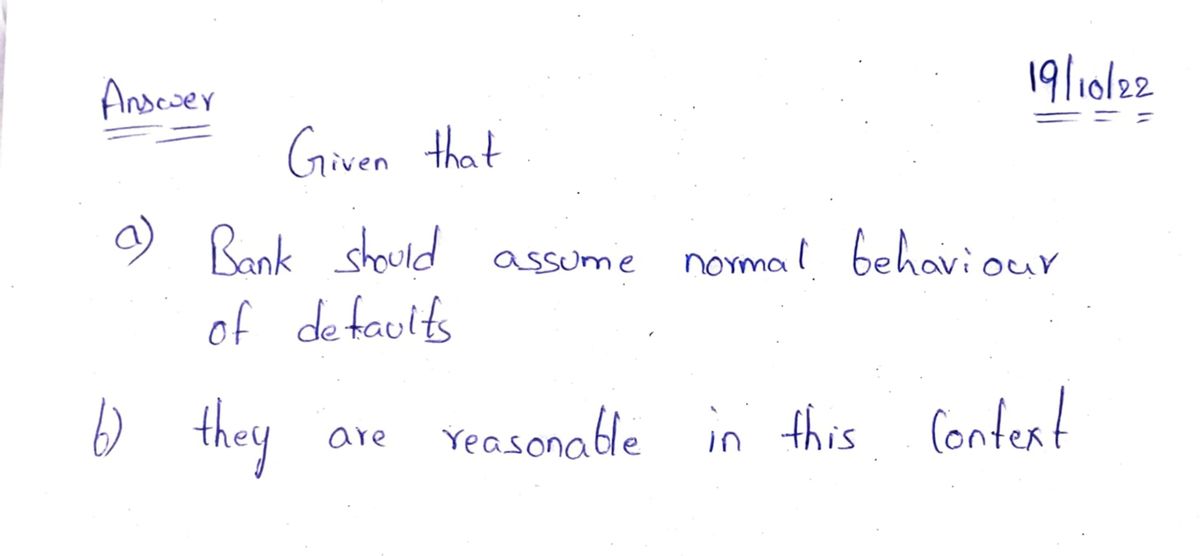 Answer
19/10/22
Given that
a) Bank should assume normal behaviour
of defaults
b) they are reasonable in this Context